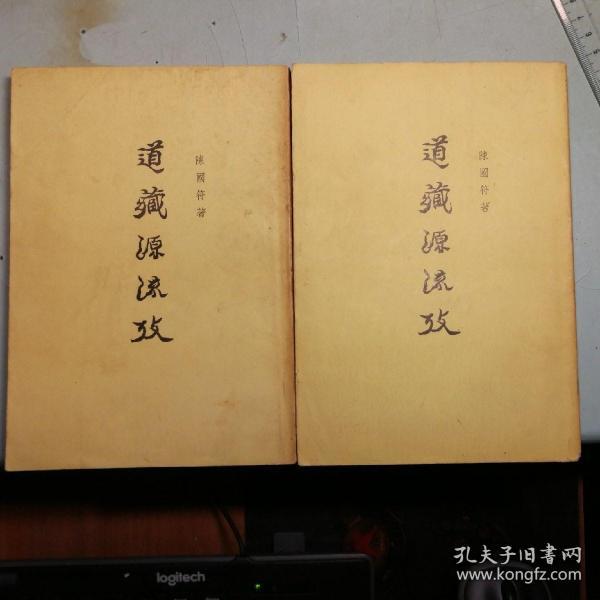 陳國符著
道藏源流攷
陳國符著
道藏源流攷
logitech
孔夫子旧書网
www.kongfz.com